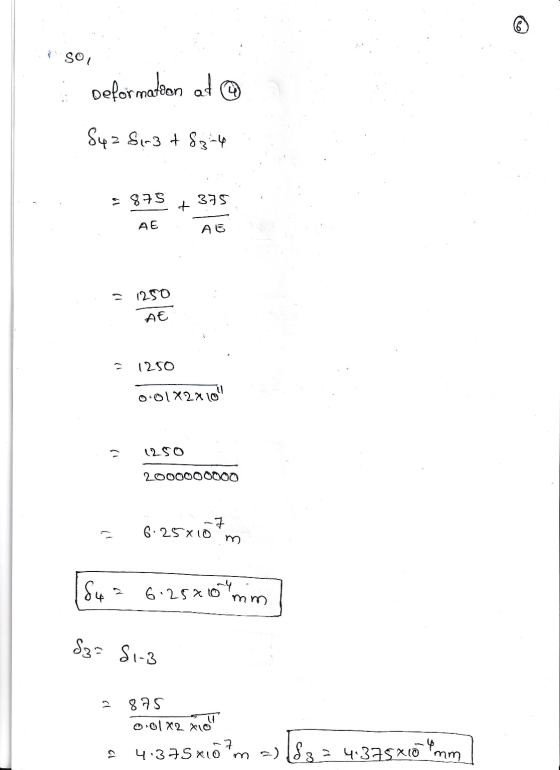 6
so,
Deformation at ④
δ4 = δ1-3 + δ3-4
= 875/AE + 375/AE
= 1250/AE
= 1250/0.01×2×10¹¹
= 1250/2000000000
= 6.25×10⁻⁷ m
δ4 = 6.25×10⁻⁴ mm
δ3 = δ1-3
= 875/0.01×2×10¹¹
= 4.375×10⁻⁷ m => δ3 = 4.375×10⁻⁴ mm